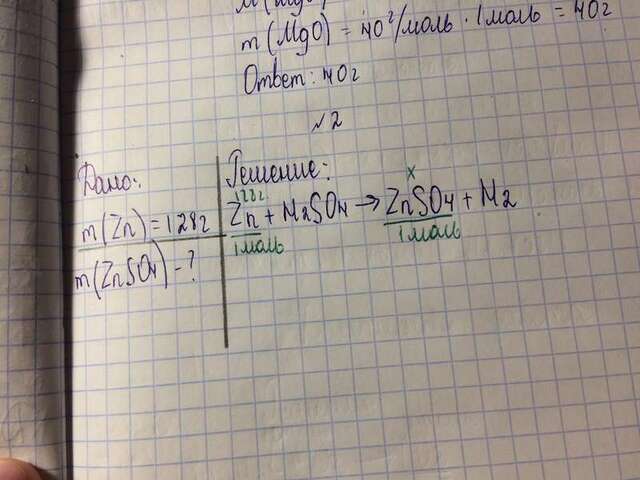 m(MgO) = 40 г/моль · 1моль = 40г
Ответ: 40г
№2
Дано:
m(Zn) = 128г
m(ZnSO4) - ?
Решение:
128г x
Zn + H2SO4 → ZnSO4 + H2
1моль 1моль